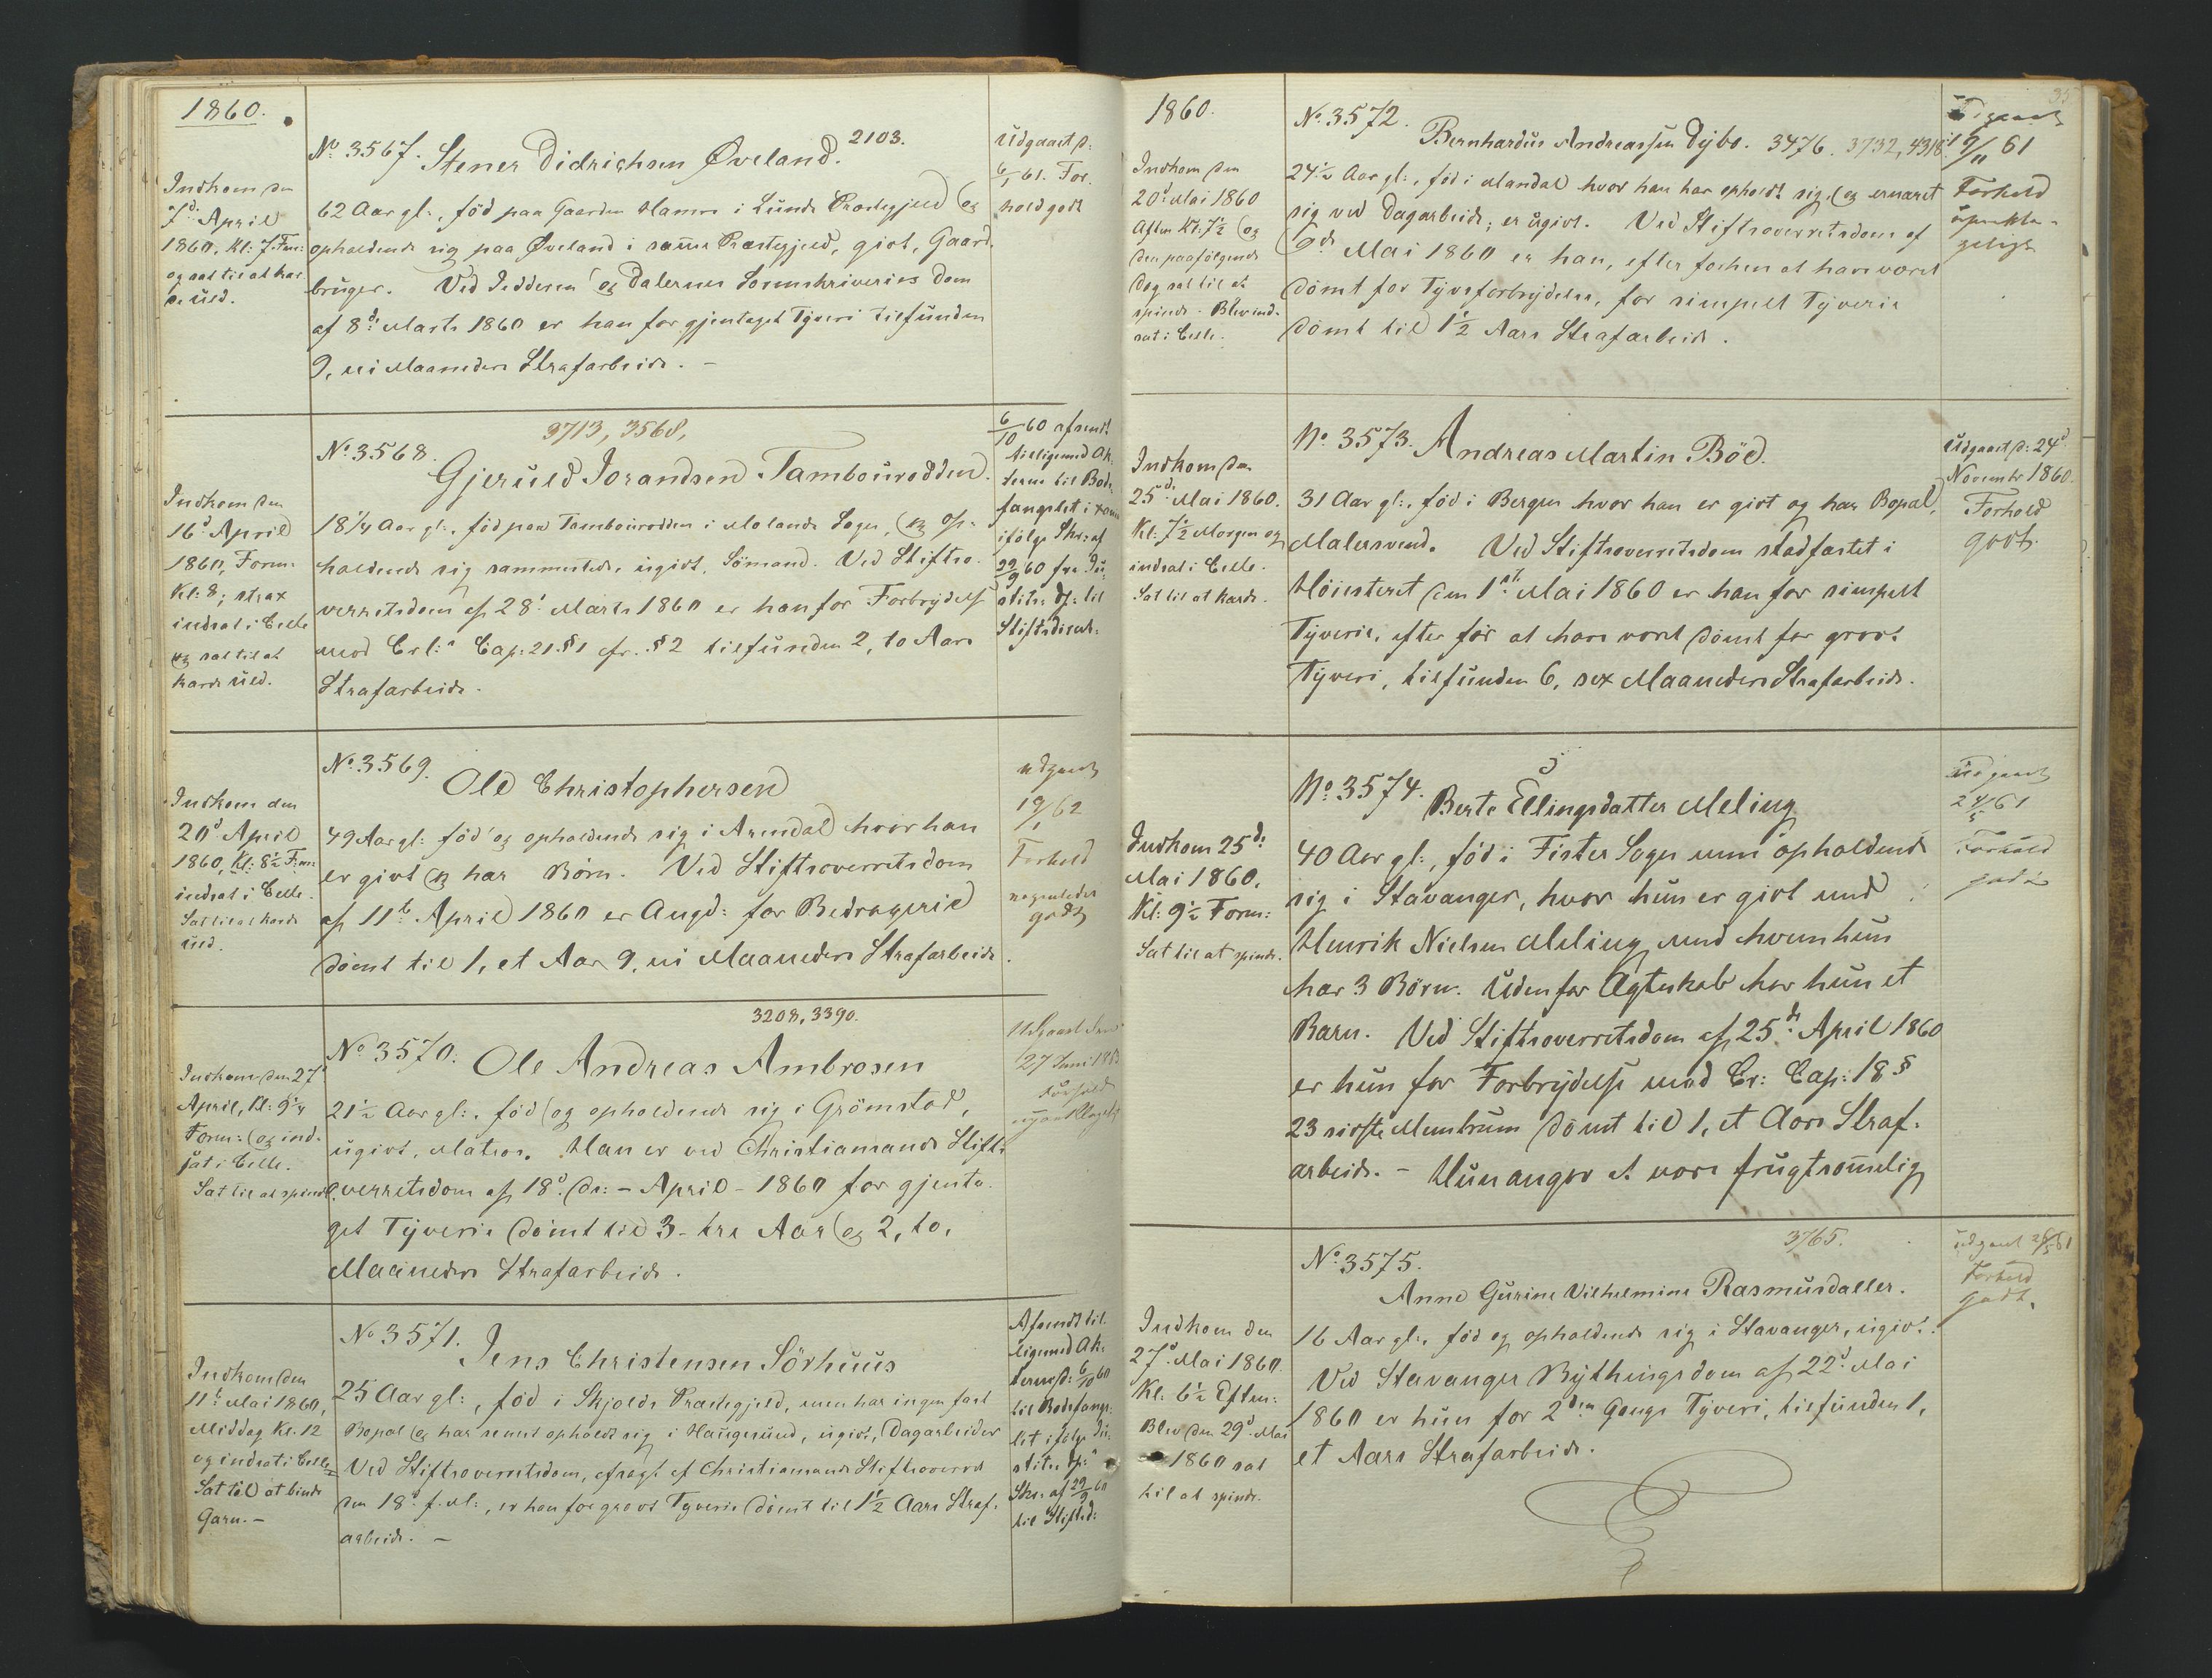 1860.
No 3567. Stener Didrichsen Øveland. 2103.
Indkom den
7d April
1860, Kl: 7 Fm:
og sat til at kar-
de Uld.
62 Aar gl:, föd paa Gaarden Hamre i Lunds Præstegjeld og
opholdende sig paa Øveland i samme Præstegjeld, givt, Gaard-
bruger. Ved Jedderen og Dalernes Sorenskriveries Dom
af 8d Marts 1860 er han for gjentaget Tyveri tilfunden
9, ni Maaneders Strafarbeide. –
Udgaaet d:
6/1 61. For-
hold godt
3713, 3568,
No 3568.
Gjeruld Jorandsen Tambourodden.
Indkom den
16d April
1860, Form:
Kl: 8; strax
indsat i Celle
og sat til at
karde Uld.
18 1/4 Aar gl:, föd paa Tambourodden i Molands Sogn, og op-
holdende sig sammesteds, ugivt, Sömand. Ved Stiftso-
verretsdom af 28d Marts 1860 er han for Forbrydelse
mod Crl: Cap: 21 §1 cfr. §2 tilfunden 2, to Aars
Strafarbeide.
6/10 60 afsendt
tilligemed Ak-
terne til Bods-
fængslet i
ifölge Skr: af
22/9 60 fra Ju-
stits: Dp: til
Stiftsdirek:
No 3569.
Ole Christophersen
Indkom den
20d April
1860, Kl: 8 1/2 Fm:
indsat i Celle.
Sat til at karde
Uld.
49 Aar gl: föd og opholdende sig i Arendal hvor han
er givt og har Börn. Ved Stiftsoverretsdom
af 11te April 1860 er Angd: for Bedragerie
dömt til 1, et Aar 9, ni Maaneders Strafarbeide.
udgaaet
19/1 62
Forhold
nogenledes
godt
3208, 3390.
No 3570. Ole Andreas Ambrosen
Indkom den 27
April, Kl: 9 1/4
Form: og ind-
sat i Celle.
Sat til at spinde.
21 1/2 Aar gl:, föd og opholdende sig i Grömstad,
ugivt, Matros. Han er ved Christiansands Stifts-
overretsdom af 18d ds: – April – 1860 for gjenta-
get Tyverie dömt til 3 – tre Aar og 2, to,
Maaneders Strafarbeide.
Udgaaet den
27 Juni 1863
Forhold
upaaklageligt
No 3571. Jens Christensen Sörhuus
Indkom den
11te Mai 1860,
Middag Kl. 12
og indsat i Celle
Sat til at binde
Garn. –
25 Aar gl:, föd i Skjolds Præstegjeld, men har ingen fast
Bopæl og har senest opholdt sig i Haugesund, ugivt, Dagarbeider
Ved Stiftsoverretsdom, afsagt af Christiansands Stiftsoverret
den 18d f. M:, er han for grovt Tyverie dömt til 1 1/2 Aars Straf-
arbeide. –
Afsendt til-
ligemed Ak-
terne d: 6/10 60
til Bodsfængs-
let ifölge Ju-
stits: Dp:s
Skr: af 22/9 60
til Stiftsd:
1860.
35
No 3572.
Bernhardus Andreassen Dybo. 3476. 3732, 4318
Indkom den
20d Mai 1860
Aften Kl: 7 1/2 og
den paafölgende
Dag sat til at
spinde. Blev ind-
sat i Celle.
24 1/2 Aar gl:, föd i Mandal hvor han har opholdt sig og ernæret
sig ved Dagarbeide; er ugivt. Ved Stiftsoverretsdom af
9de Mai 1860 er han, efter forhen at have været
dömt for Tyvsforbrydelse, for simpelt Tyverie
dömt til 1 1/2 Aars Strafarbeide.
Udgaaet
9/11 61
Forhold
upaakla-
geligt
No 3573. Andreas Martin Böe.
Indkom den
25d Mai 1860.
Kl: 7 1/2 Morgen og
indsat i Celle.
Sat til at karde.
31 Aar gl:, föd i Bergen hvor han er givt og har Bopæl,
Malersvend. Ved Stiftsoverretsdom stadfæstet i
Höiesteret den 1ste Mai 1860 er han for simpelt
Tyverie, efter för at have været dömt for grovt
Tyveri, tilfunden 6, sex Maaneders Strafarbeide.
Udgaaet d: 24d
Novembr 1860.
Forhold
godt.
No 3574. Berte Ellingsdatter Meling
Indkom 25d
Mai 1860,
Kl: 9 1/2 Form:
Sat til at spinde.
40 Aar gl:, föd i Fister Sogn men opholdende
sig i Stavanger, hvor hun er givt med
Henrik Nielsen Meling med hvem hun
har 3 Börn. Udenfor Ægteskab har hun et
Barn. Ved Stiftsoverretsdom af 25de April 1860
er hun for Forbrydelse mod Cr: Cap: 18 §
23 sidste Membrum dömt til 1, et Aars Straf-
arbeide. – Hun angav at være frugtsommelig
Udgaaet
24/5 61
Forhold
godt
3765.
No 3575.
Anne Gurine Vilhelmine Rasmusdatter.
Indkom den
27d Mai 1860.
Kl: 6 1/2 Efterm:
Blev den 29d Mai
1860 sat
til at spinde.
16 Aar gl:, föd og opholdende sig i Stavanger, ugivt.
Ved Stavanger Bythingsdom af 22d Mai
1860 er hun for 2den Gangs Tyveri, tilfunden 1,
et Aars Strafarbeide.
udgaaet 28/5 61
Forhold
godt.